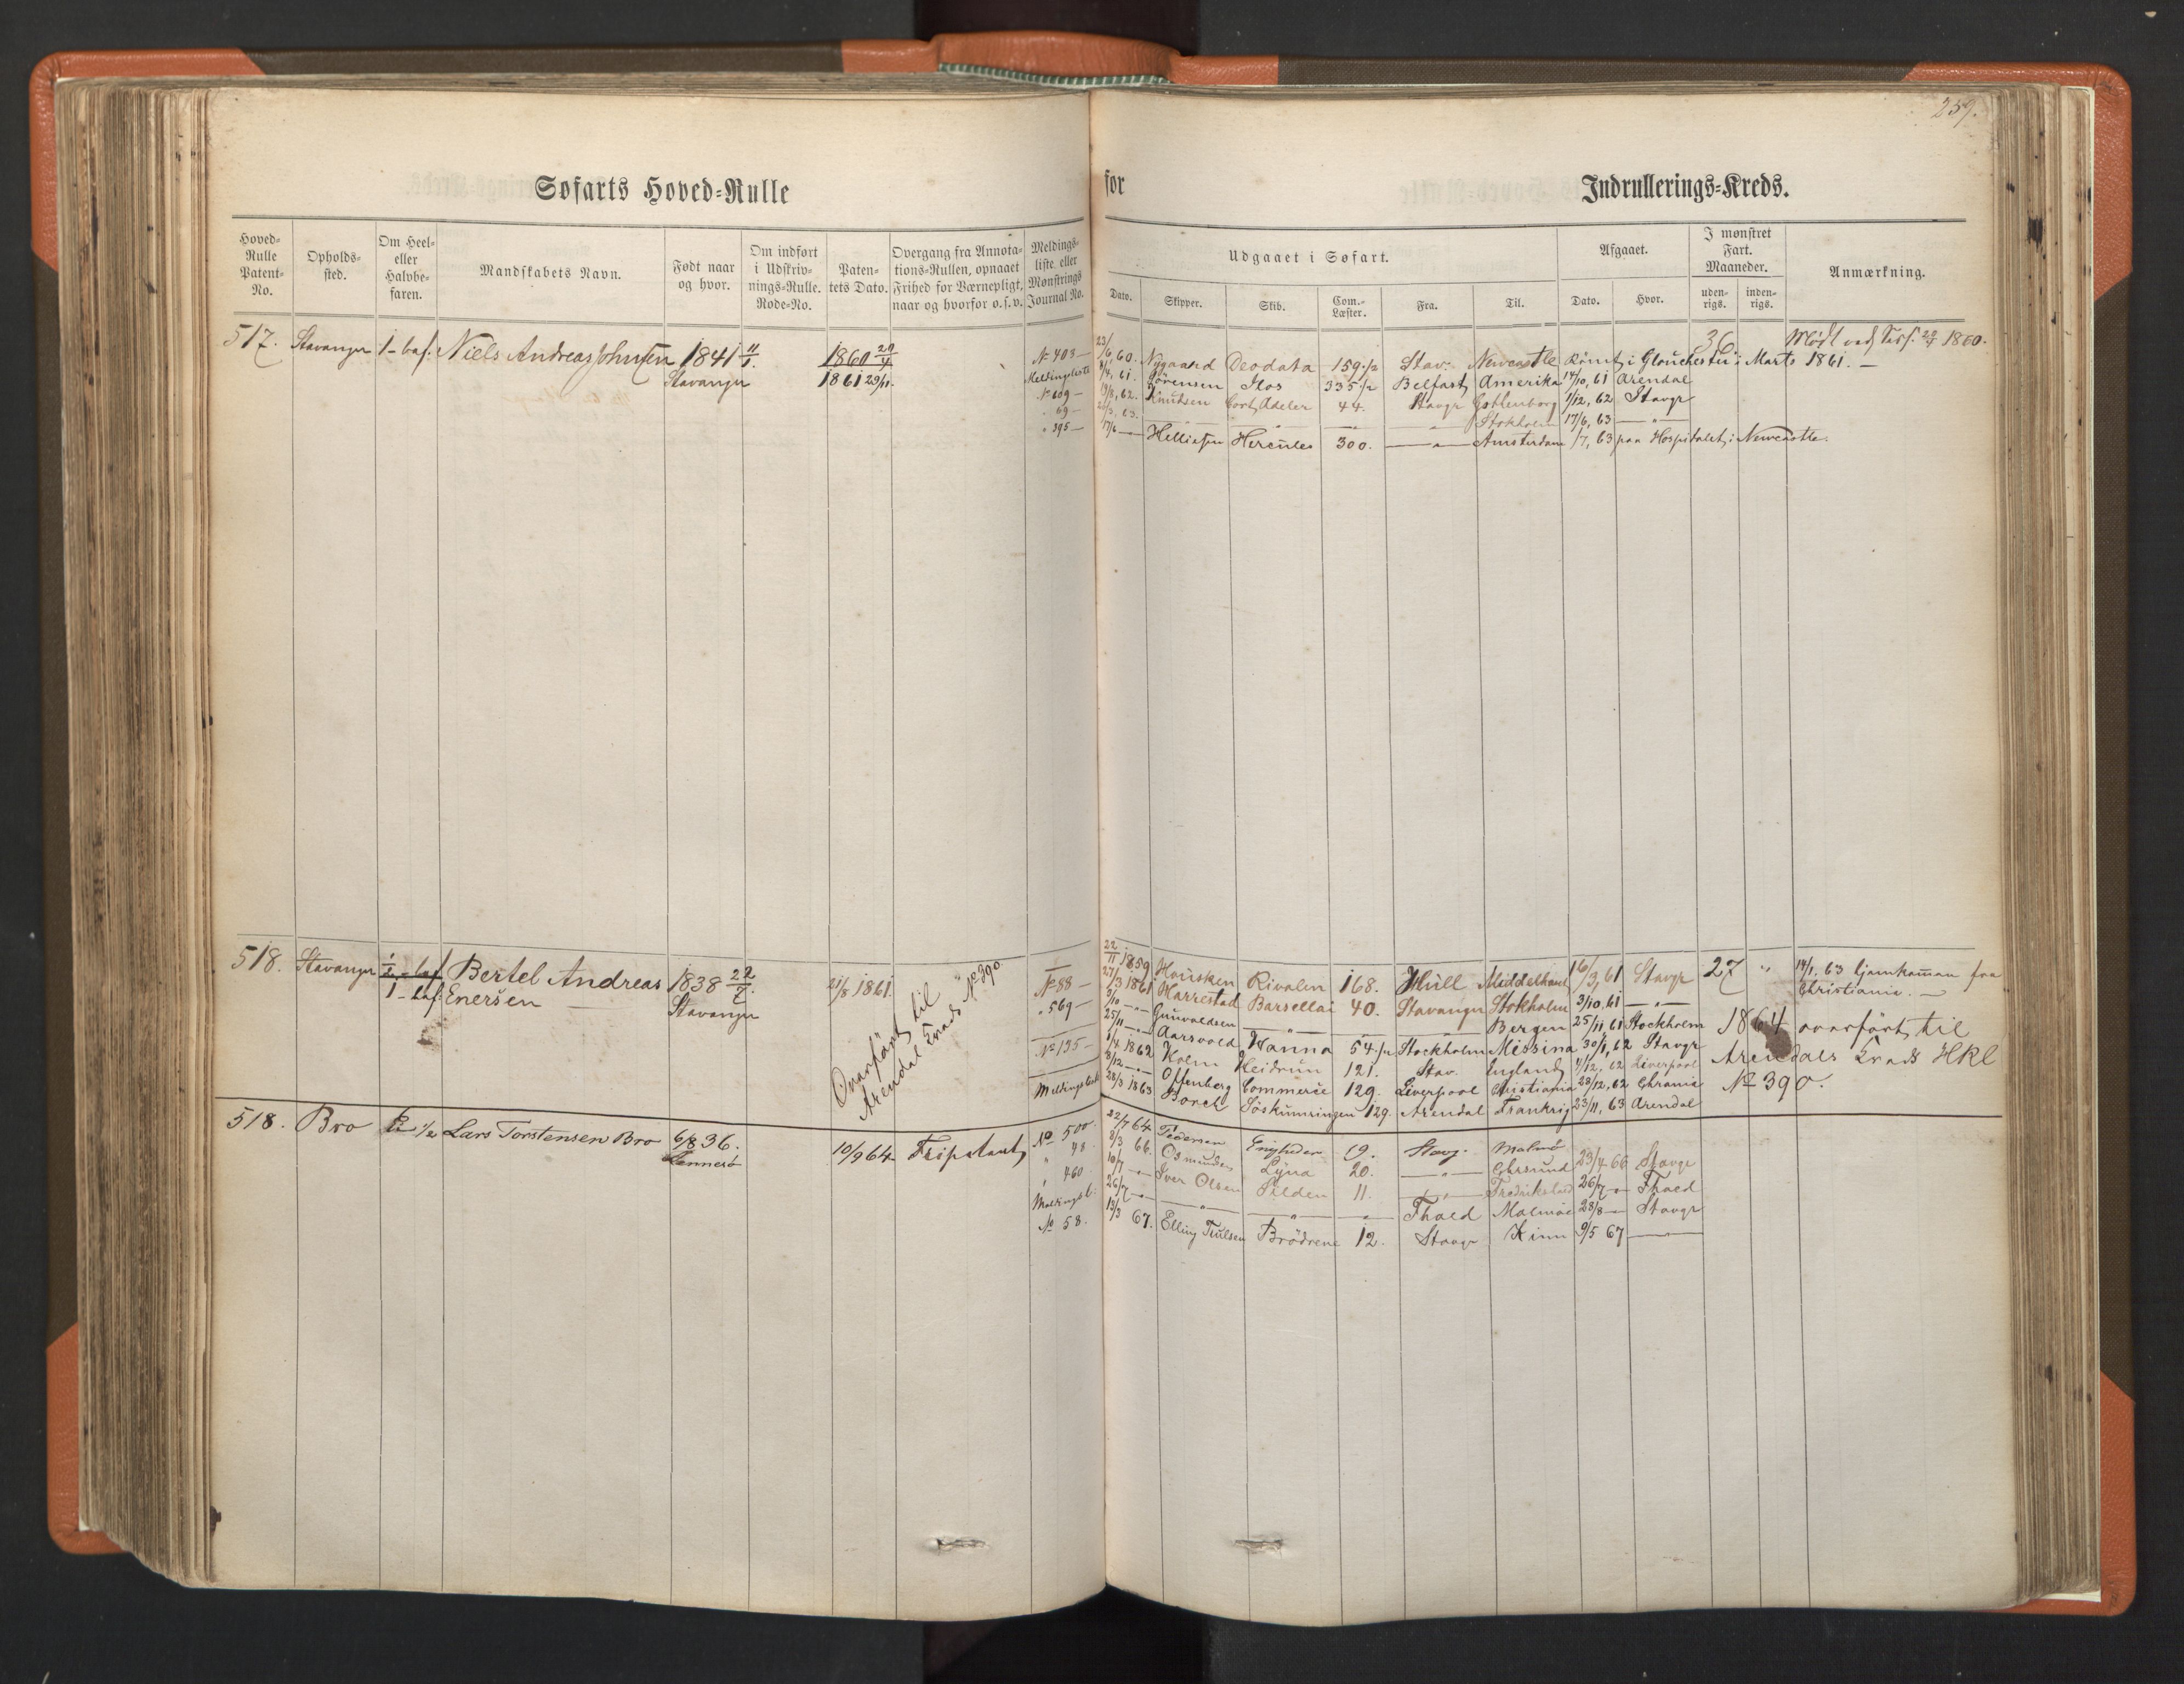 259.
Søfarts Hoved=Rulle for Indrullerings=Kreds.
Hoved=Rulle Patent=No.
Opholds=sted.
Om Heel= eller Halvbe=faren.
Mandskabets Navn.
Født naar og hvor.
Om indført i Udskriv=nings=Rulle. Rode=No.
Paten=tets Dato.
Overgang fra Annota=tions=Rullen, opnaaet Frihed for Værnepligt, naar og hvorfor o. s. v.
Meldings=liste eller Mønstrings Journal No.
Udgaaet i Søfart.
Dato. Skipper. Skib. Com.=Læster. Fra. Til.
Afgaaet.
Dato. Hvor.
I mønstret Fart. Maaneder.
uden=rigs. inden=rigs.
Anmærkning.
517. Stavanger 1-bef. Niels Andreas Johnsen 1841 11/1. Stavanger
1860 20/4
1861 29/11.
36 Mødt ved Sess. 1860.
№ 403 — 23/6, 60. Nygaard Deodata 159 1/2 Stav: Newcastle Römt i Glouchester i Marts 1861. —
Meldingsliste 4/4, 61. Sörensen Ilos 335 1/2 Belfast Amerika 14/10, 61 Arendal
№ 609 — 19/8, 62. Knudsen Cort Adeler 44. Stavgr Gothenborg 1/12, 62 Stavgr
" 69 — 26/3, 63. — " — — " — — " — " Stokholm 17/6, 63 — " —
" 395 — 17/6 — Helliesen Hercules 300. — " — Amsterdam /7, 63 paa Hospitalet i Newcastle.
518. Stavanger 1/2-bef. 1-bef: Bertel Andreas Enersen 1838 22/7. Stavanger
21/8 1861.
Overfört til Arendal Kreds № 390
22/11 1859 Housken Rivalen 168. Hull Middelhavet 16/3, 61 Stavgr 27 " 14/1. 63 hjemkommen fra Christiania. —
№ 88 — 27/3 1861 Harrestad Barsellai 40. Stavanger Stokholm 3/10, 61 — " —
" 569 — 3/10 — " — Gunvaldsen — " — — " — — " — Bergen 25/11 61 Stockholm
25/11 — " — Aarsvold Hanna 54 1/2 Stockholm Missina 30/1, 62 Stavgr
№ 135 — 1/4 1862 Holm Heidrun 121. Stav. England 1/12, 62 Liverpool
8/12 — " — Offenberg Commerce 129. Liverpool Christiania 28/12, 62 Chrania
Meldingsliste 28/3 1863 Borch Söskumringen 129. Arendal Frankrig 23/11, 63 Arendal
1864 overfört til Arendals Kreds HRl № 390.
518. Bro 1/2 Lars Torstensen Bro 6/8 36. Rennesö
10/9 64 Fripatent
№ 500. 22/7 64 Pedersen Enigheden 19. Stavg. Malmö
" 48. 8/3 66. Osmundsen Lyna 20. — " — Egersund 23/4 66 Stavgr
" 460. 10/7 — " — Iver Olsen Silden 11. — " — Fredrikstad 26/7 — " — Thaed
Meldingsl: 26/7 — " — — " — — " — — " — Thaed Malmöe 28/8 — Stavgr
№ 58. 13/3 67. Elling Trulsen Brödrene 12. Stavgr Kinn 9/5 67 —